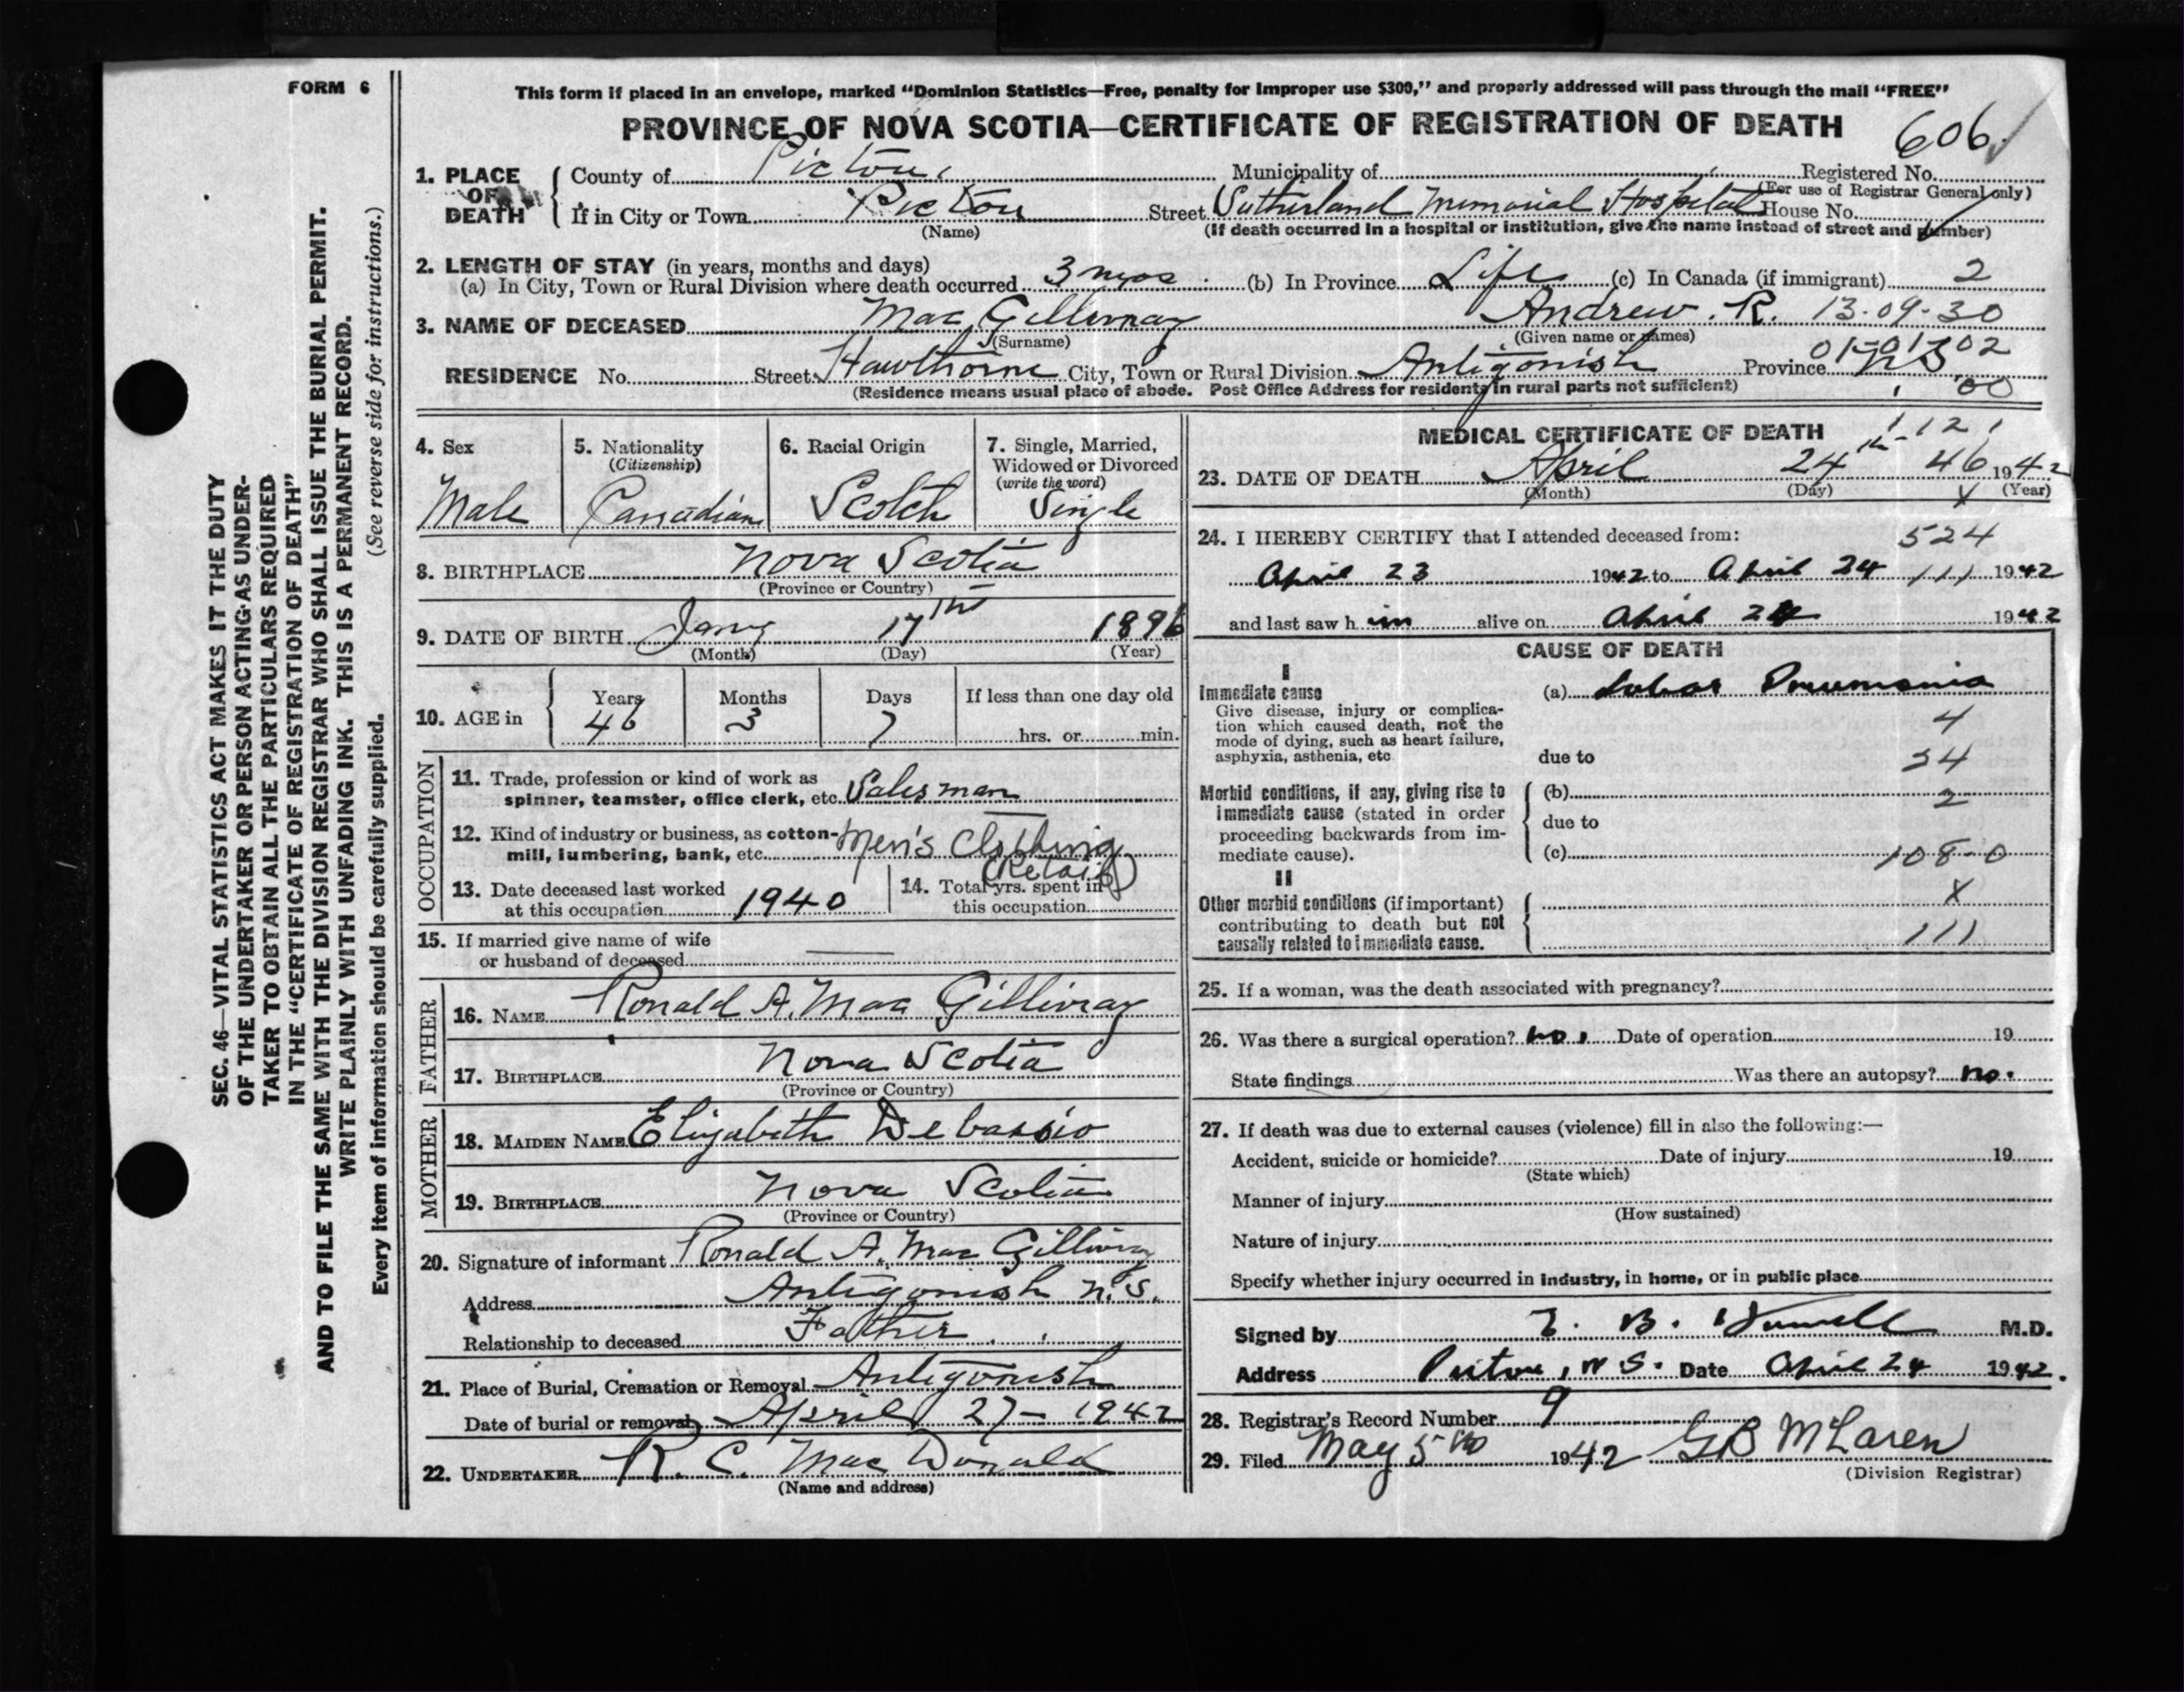 FORM 6
This form if placed in an envelope, marked “Dominion Statistics—Free, penalty for improper use $300,” and properly addressed will pass through the mail “FREE”
PROVINCE OF NOVA SCOTIA—CERTIFICATE OF REGISTRATION OF DEATH
606
1. PLACE OF DEATH
County of Pictou, Municipality of Registered No.
(For use of Registrar General only)
If in City or Town Pictou Street Sutherland Memorial Hospital House No.
(Name) (If death occurred in a hospital or institution, give the name instead of street and number)
2. LENGTH OF STAY (in years, months and days)
(a) In City, Town or Rural Division where death occurred 3 mos. (b) In Province Life (c) In Canada (if immigrant) 2
3. NAME OF DECEASED Mac Gillivray Andrew. R. 13-09-30
(Surname) (Given name or names)
RESIDENCE No. Street Hawthorne City, Town or Rural Division Antigonish Province N.S.
00
(Residence means usual place of abode. Post Office Address for residents in rural parts not sufficient)
4. Sex
Male
5. Nationality
(Citizenship)
Canadian
6. Racial Origin
Scotch
7. Single, Married,
Widowed or Divorced
(write the word)
Single
8. BIRTHPLACE Nova Scotia
(Province or Country)
9. DATE OF BIRTH Jany 17th 1896
(Month) (Day) (Year)
10. AGE in
Years Months Days If less than one day old
46 3 7 hrs. or min.
OCCUPATION
11. Trade, profession or kind of work as
spinner, teamster, office clerk, etc. Salesman
12. Kind of industry or business, as cotton-
mill, lumbering, bank, etc. Men's Clothing
(Retail)
13. Date deceased last worked
at this occupation 1940
14. Total yrs. spent in
this occupation
15. If married give name of wife
or husband of deceased
FATHER
16. NAME Ronald A. Mac Gillivray
17. BIRTHPLACE Nova Scotia
(Province or Country)
MOTHER
18. MAIDEN NAME Elizabeth Debassio
19. BIRTHPLACE Nova Scotia
(Province or Country)
20. Signature of informant Ronald A. Mac Gillivray
Address Antigonish N.S.
Relationship to deceased Father
21. Place of Burial, Cremation or Removal Antigonish
Date of burial or removal April 27- 1942
22. UNDERTAKER R. C. Mac Donald
(Name and address)
MEDICAL CERTIFICATE OF DEATH
1 12 1
23. DATE OF DEATH April 24th 46 1942
(Month) (Day) X (Year)
24. I HEREBY CERTIFY that I attended deceased from:
524
April 23 1942 to April 24 111 1942
and last saw him alive on April 24 1942
CAUSE OF DEATH
I
Immediate cause
Give disease, injury or complica-
tion which caused death, not the
mode of dying, such as heart failure,
asphyxia, asthenia, etc
(a) Lobar Pneumonia
4
due to
34
Morbid conditions, if any, giving rise to
immediate cause (stated in order
proceeding backwards from im-
mediate cause).
(b) 2
due to
(c) 108-0
II
Other morbid conditions (if important)
contributing to death but not
causally related to immediate cause.
X
111
25. If a woman, was the death associated with pregnancy?
26. Was there a surgical operation? no. Date of operation 19
State findings Was there an autopsy? no.
27. If death was due to external causes (violence) fill in also the following:—
Accident, suicide or homicide? Date of injury 19
(State which)
Manner of injury
(How sustained)
Nature of injury
Specify whether injury occurred in industry, in home, or in public place
Signed by B. M.D.
Address Pictou, N S. Date April 24 1942.
28. Registrar's Record Number 9
29. Filed May 5th 1942 G B McLaren
(Division Registrar)
SEC. 46—VITAL STATISTICS ACT MAKES IT THE DUTY
OF THE UNDERTAKER OR PERSON ACTING AS UNDER-
TAKER TO OBTAIN ALL THE PARTICULARS REQUIRED
IN THE “CERTIFICATE OF REGISTRATION OF DEATH”
AND TO FILE THE SAME WITH THE DIVISION REGISTRAR WHO SHALL ISSUE THE BURIAL PERMIT.
WRITE PLAINLY WITH UNFADING INK. THIS IS A PERMANENT RECORD.
Every item of information should be carefully supplied. (See reverse side for instructions.)